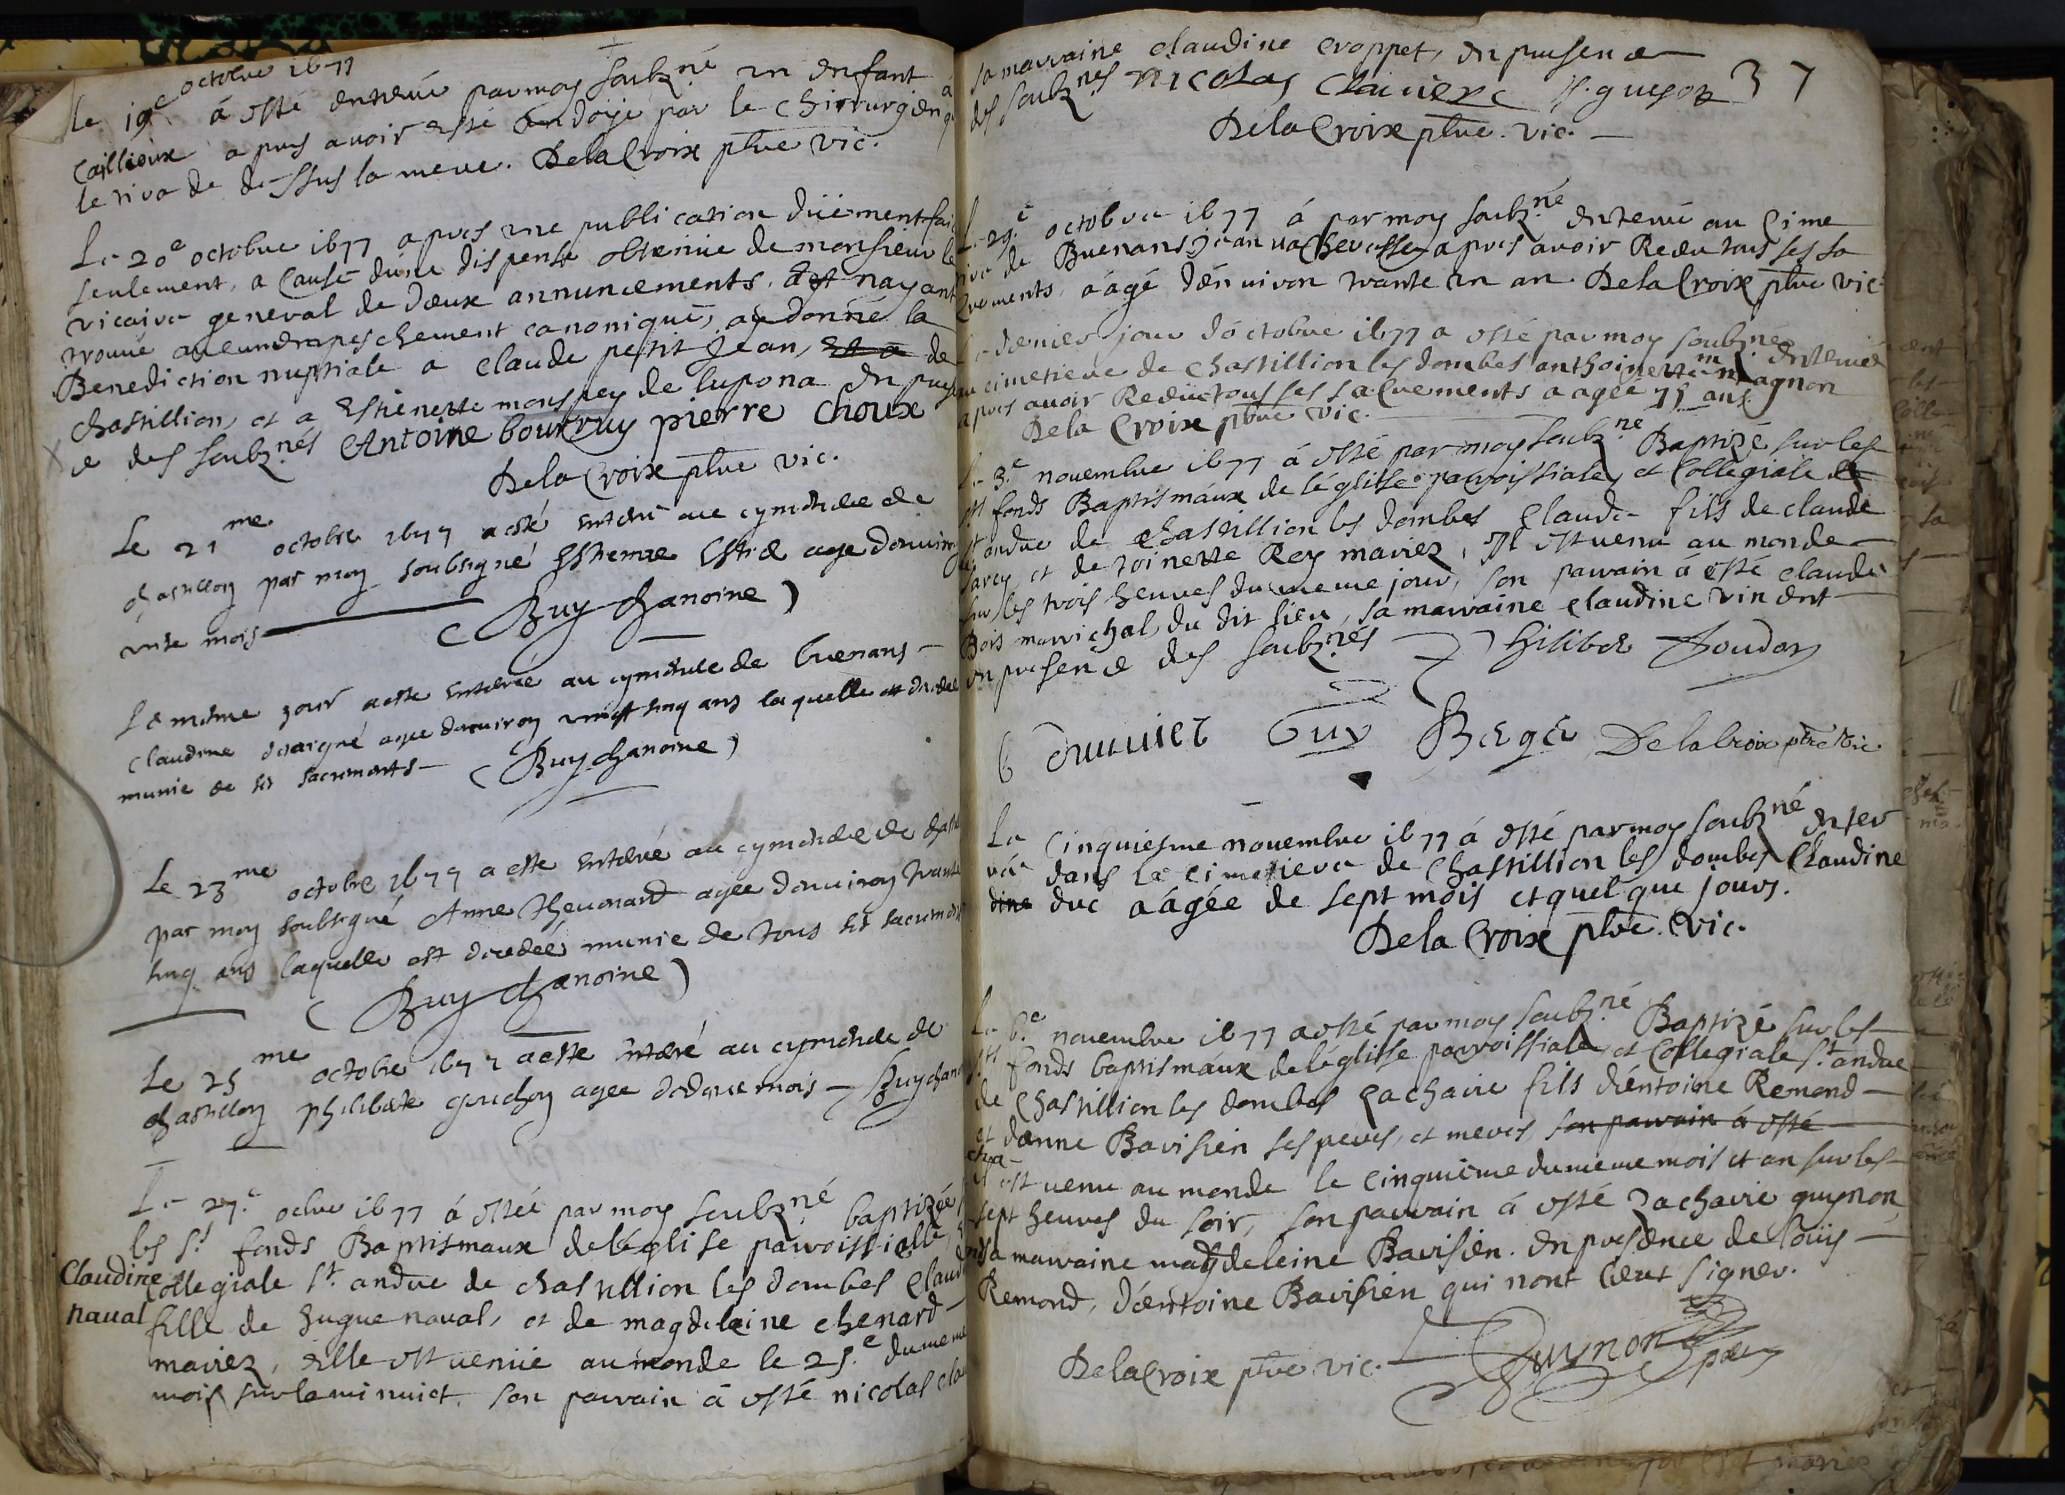 le 19e octobre 1677
á esté enterré par moy soubzné un enfant á
Caillioux apres avoir esté ondoyé par le Chirurgien
le tira de dessus la mere. Delacroix ptre vic.
Le 20e octobre 1677 apres une publication düement fai
seulement, a Cause dune dispense obtenüe de monsieur le
vicaire general de deux annuncements. et nayant
trouué aucun empeschement canonique, ay donné la
Benediction nuptiale a claude petit Jean, de
chastillion, et a Estienette monspey de lupona en presen
ce des soubznés Antoine bourcruy pierre choux
Delacroix ptre vic.
Le 21me octobre 1677 a esté enterré au cymetiere de
chastillon par moy soubsigné Estienne age denuiron
unse mois
( Buy chanoine )
Le mesme jour a esté enterrée au cymetiere de buenans
Claudine agee denuiron vingt sinq ans laquelle est decedee
munie de ses sacrements ( Buy chanoine )
Le 23me octobre 1677 a esté enterré au cymetiere de chast
par moy soubsigné Anne Theuenard agee denuiron trante
sinq ans laquelle est decedeé munie de tous ses sacrements
( Buy chanoine )
Le 25me octobre 1677 a esté enterré au cymetiere de
chastillon philiberte gonchon agee de douse mois Buy chan
Le 27.e octbre 1677 á estée par moy soubzné baptizée
les sts fonds Baptismaux de léglise parroissialle,
Claudine Collegiale st. andre de chastillion les dombes Claud
naual fille de hugue naual, et de magdeleine chenard
mariez, elle est venüe au monde le 25.e du meme
mois sur la minuict. son parrain á esté nicolas cla
sa marraine claudine croppet, en presence
des soubznés nicolas claiuiere guyon 37
Delacroix ptre. vic.
Le 29.e octobre 1677 á par moy soubzné enterré au Cime
tiere de Buenans jean vacheresse apres avoir Receu tous ses sa
crements, áágé dénuiron trante un an. Delacroix ptre vic.
Le dernier jour dóctobre 1677 a esté par moy soubzné enterrée
au cimetiere de chastillion les dombes anthoinette magnon
apres auoir Receu tous ses sacrements aagée 75 ans.
Dela Croix ptre vic.
Le 3.e novembre 1677 á esté par moy soubzné Baptizé sur les
sts fonds Baptismáux de léglisse parroissiale, et Collegiale
st andre de chastillion les dombes Claude fils de claude
sarcy et de toinette Rey mariez, Il est venu au monde
sur les trois heures du meme jour, son parrain á esté claude
Bois marichal du dit lieu, sa marraine claudine vincent
en presence des soubznés philiber Joudon
b Guy Berger Delacroix ptre vic
Le Cinquiesme nouembre 1677 á esté par moy soubzné enter
rée dans le cimetiere de chastillion les dombes Claudine
dine duc áágée de sept mois et quelque jours.
Dela Croix ptre. vic.
Le 6.e nouembre 1677 a esté par moy soubzné Baptizé sur les
sts fonds baptismáux de léglisse parroissiale, et Collegiale st. andre
de chastillion les dombes zacharie fils déntoine Remond
et dánne Bavisien ses peres, et meres, son parrain á esté
est venu au monde le cinquiéme du meme mois et an sur les
sept heures du soir, son parrain á esté zacharie guynon,
sa marraine magdeleine Bavisien. en presence de loüis
Remond, dentoine Bavisien qui nont sceu signer.
Delacroix ptre vic. Guynon